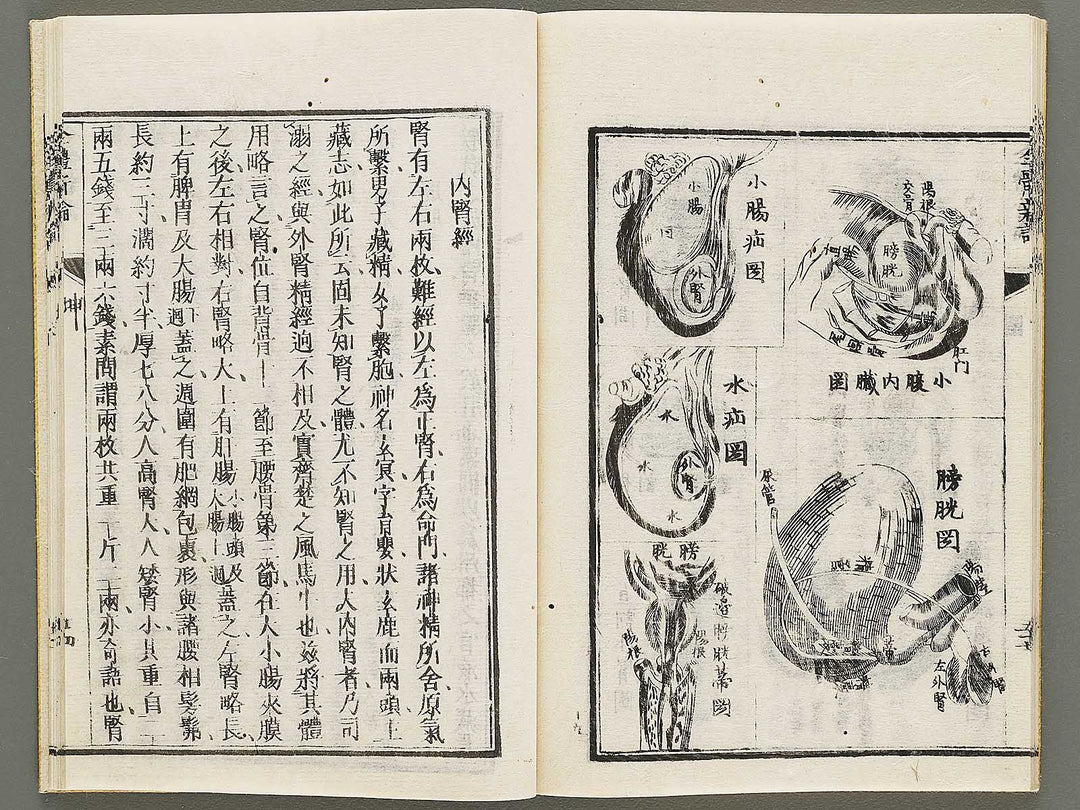 全體新論
膀胱
陽根
肛門
小腹內臟圖
膀胱圖
尿管
左外腎
小腸疝圖
小腸
外腎
水疝圖
水
水
水
外腎
膀胱
陽根
內腎經
腎有左右兩枚難經以左為正腎右為命門諸神精所舍原氣
所繫男子藏精女子繫胞神名玄冥字育嬰狀玄鹿而兩頭主
藏志如此所云固未知腎之體尤不知腎之用大內腎者乃司
溺之經與外腎精經迥不相及實齊楚之風馬牛也茲將其體
用略言之腎位自背骨十一節至腰骨第三節在人小腸夾膜
之後左右相對右腎略大上有肝腸小腸頭及大腸上迴蓋之左腎略長
上有脾胃及大腸下迴蓋之週圍有肥網包裹形與諸腰相髣髴
長約三寸濶約寸半厚七八分人高腎大人矮腎小其重自二
兩五錢至三兩六錢素問謂兩枚共重一斤一兩亦奇語也腎
全體新論
坤